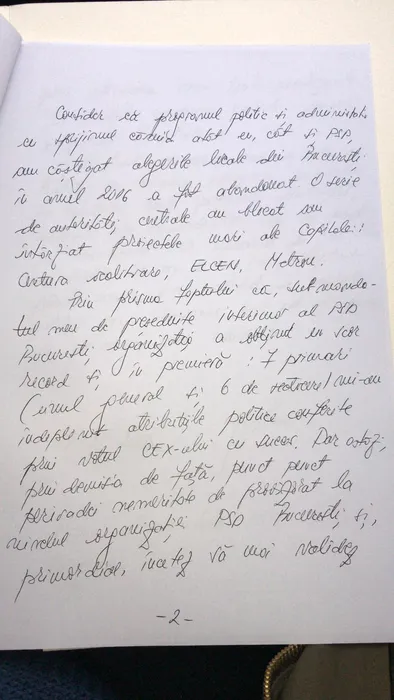 Consider că programul politic și administrativ
cu sprijinul căruia atât eu, cât și PSD,
am câștigat alegerile locale din București
în anul 2016 a fost abandonat. O serie
de autorități centrale au blocat sau
întârziat proiectele mari ale Capitalei:
Centura ocolitoare, ELCEN, Metrou.
Prin prisma faptului că, sub manda-
tul meu de președinte interimar al PSD
București, organizația a obținut un scor
record și, în premieră: 7 primari
(unul general și 6 de sectoare) mi-am
îndeplinit atribuțiile politice conferite
prin votul CEX-ului cu succes. Dar astăzi,
prin demisia de față, pun punct
perioadei nemeritate de provizorat la
nivelul organizației PSD București și,
primordial, încetez să mai validez
-2-